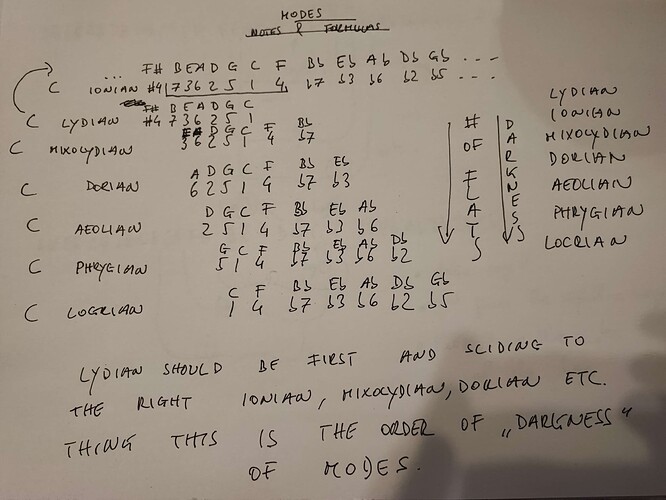 MODES
NOTES & FORMULAS
... F# B E A D G C F Bb Eb Ab Db Gb ...
C IONIAN #4 7 3 6 2 5 1 4 b7 b3 b6 b2 b5 ...
F# B E A D G C
C LYDIAN #4 7 3 6 2 5 1
E A D G C F Bb
C MIXOLYDIAN 3 6 2 5 1 4 b7
A D G C F Bb Eb
C DORIAN 6 2 5 1 4 b7 b3
D G C F Bb Eb Ab
C AEOLIAN 2 5 1 4 b7 b3 b6
G C F Bb Eb Ab Db
C PHRYGIAN 5 1 4 b7 b3 b6 b2
C F Bb Eb Ab Db Gb
C LOCRIAN 1 4 b7 b3 b6 b2 b5
# OF FLATS
DARKNESS
LYDIAN
IONIAN
MIXOLYDIAN
DORIAN
AEOLIAN
PHRYGIAN
LOCRIAN
LYDIAN SHOULD BE FIRST AND SLIDING TO
THE RIGHT IONIAN, MIXOLYDIAN, DORIAN ETC.
THING THIS IS THE ORDER OF „DARGNESS“
OF MODES.